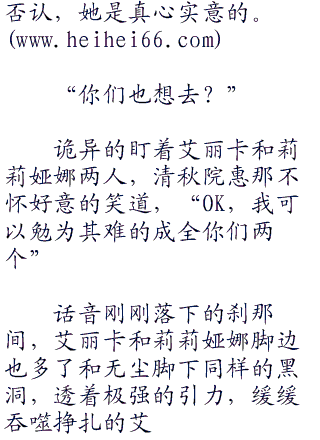 否认，她是真心实意的。
(www.heihei66.com)
“你们也想去？”
诡异的盯着艾丽卡和莉
莉娅娜两人，清秋院惠那不
怀好意的笑道，“OK，我可
以勉为其难的成全你们两
个”
话音刚刚落下的刹那
间，艾丽卡和莉莉娅娜脚边
也多了和无尘脚下同样的黑
洞，透着极强的引力，缓缓
吞噬挣扎的艾